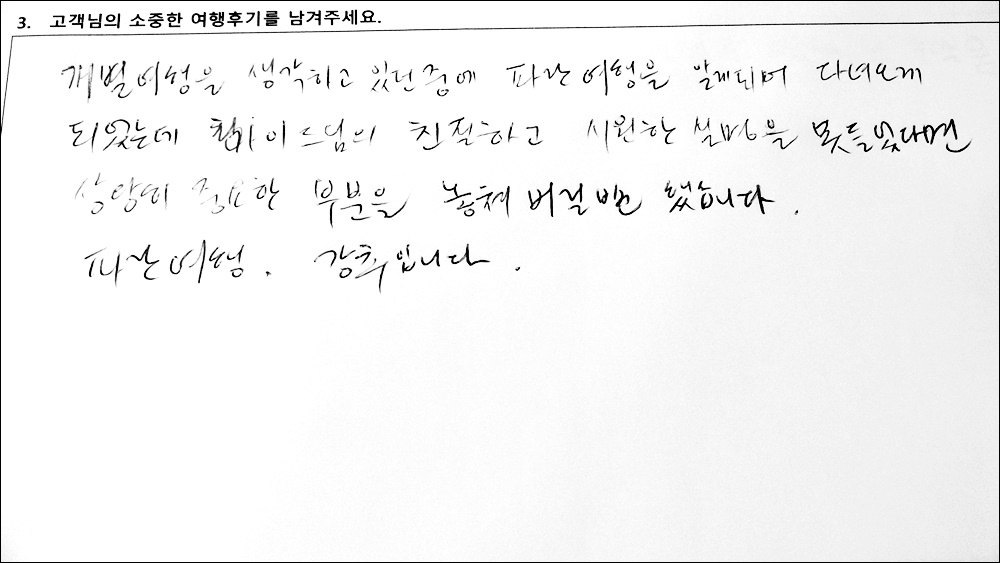 3. 고객님의 소중한 여행후기를 남겨주세요.
개별여행을 생각하고 있던중에 파란여행을 알게되며 다녀오게
되었는데 가이드님의 친절하고 시원한 설명을 못들었다면
상당히 중요한 부분을 놓쳐 버릴뻔 했습니다.
파란여행. 강추입니다.